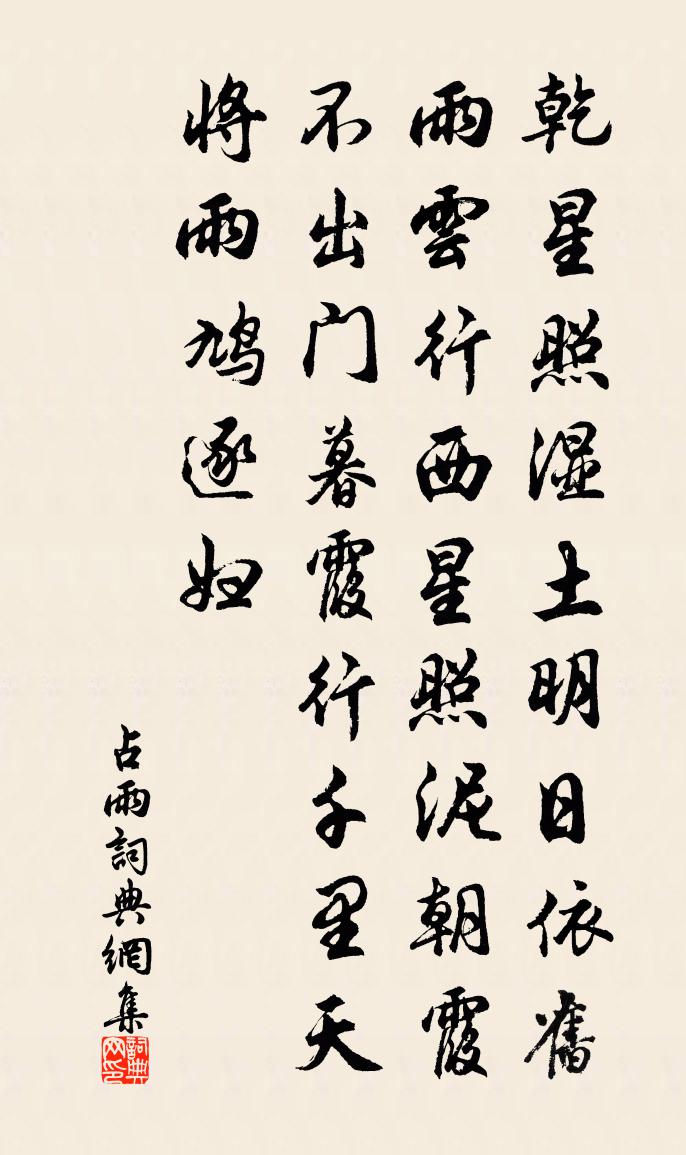 乾星照湿土明日依舊
雨雲行西星照泥朝霞
不出门暮霞行千里天
将雨鸠逐妇
占雨詞典網集
詞典网印